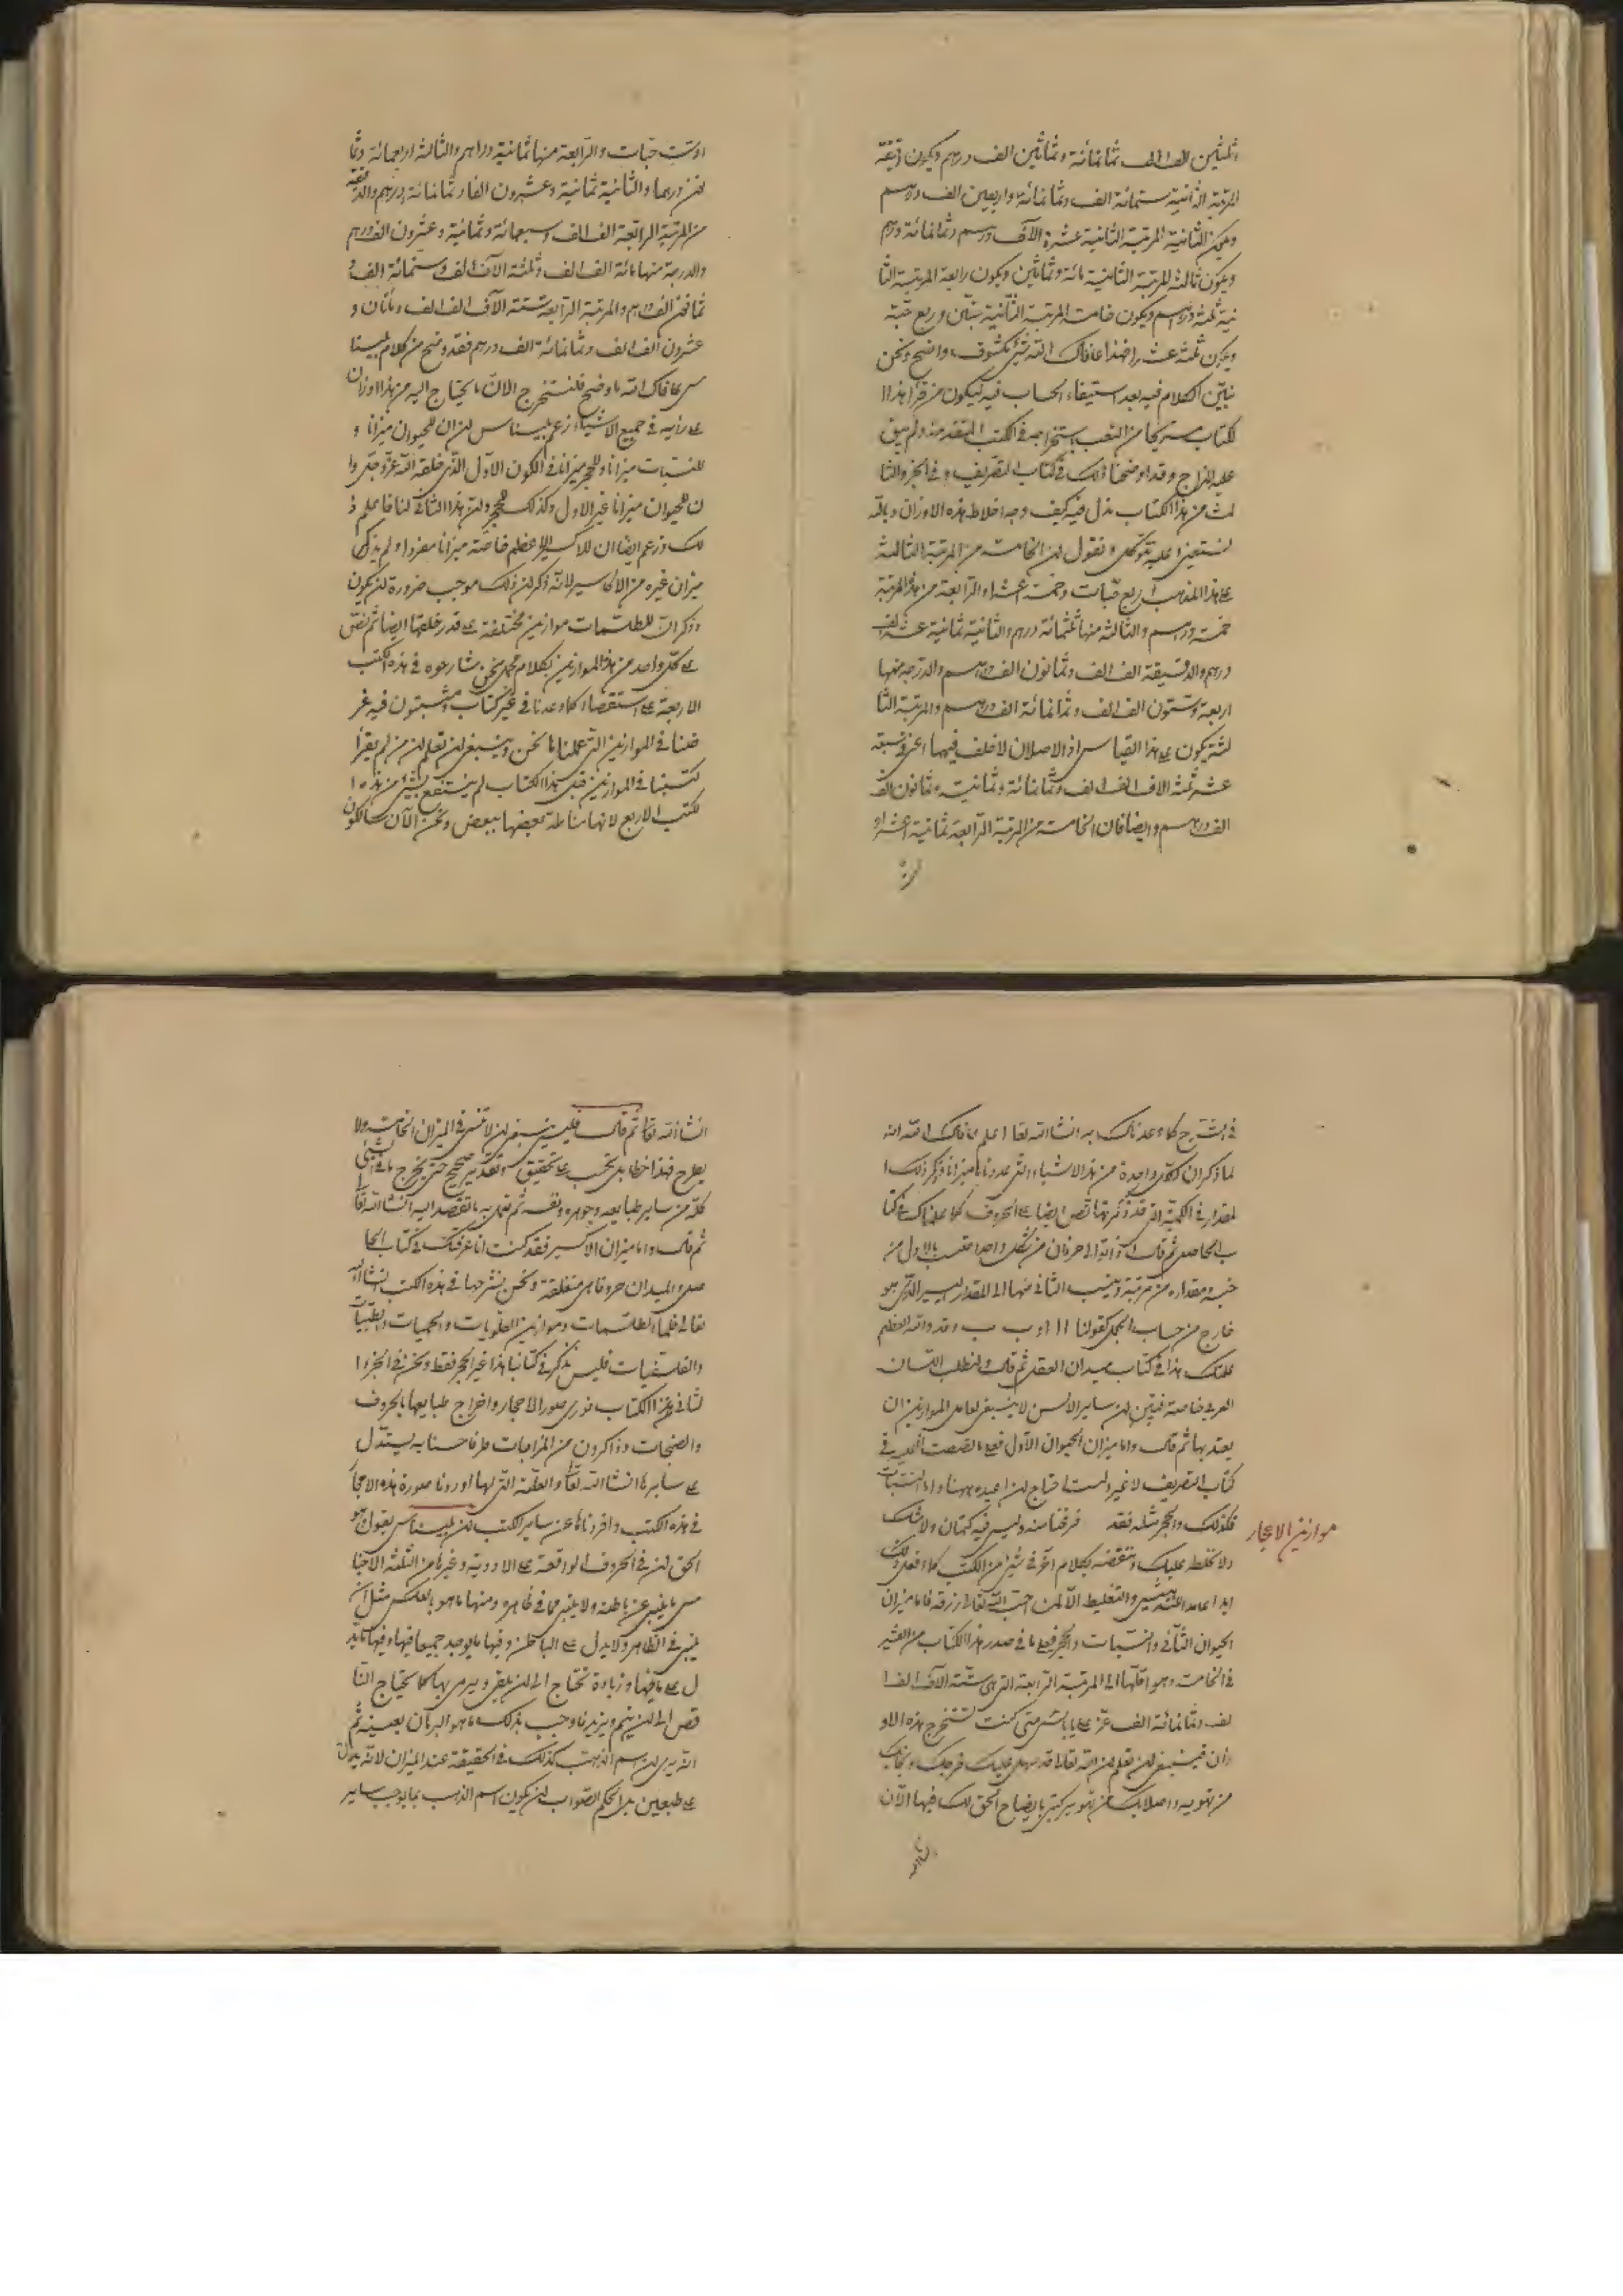 وثلثين الف الف وثمانمائة وثمانين الف درهم ويكون دقيقة
المرتبة الثانية ستمائة الف وثمانمائة واربعين الف درهم
ويكون الثانية المرتبة الثانية عشرة الآف درهم وثمانمائة درهم
ويكون ثالثة المرتبة الثانية مائة وثمانين ويكون رابعة المرتبة الثا
نية ثلثة دراهم ويكون خامسة المرتبة الثانية حبتين وربع حبة
ويكون ثلثة عشر فهذا عافاك الله شئ مكشوف واضح ونحن
نبيّن الكلام فيه بعد استيفاء الحساب فيه ليكون من قرأ هذا ا
لكتاب مستريحا من التعب باستخراجه في الكتب المتقدمة ولم يبق
عليه المزاج وقد اوضحنا ذلك في كتاب التصريف وفي الجزو الثا
لث من هذا الكتاب ندل فيه كيف وجه اخلاط هذه الاوزان وبالله
نستعين وعليه نتوكل ونقول ان الخامسة من المرتبة الثالثة
على هذا المذهب اربع حبات وخمسة اعشار والرابعة من هذه المرتبة
خمسة دراهم والثالثة منها ثلثمائة درهم والثانية ثمانية عشر الف
درهم والدقيقة الف الف وثمانون الف درهم والدرجة منها
اربعة وستون الف الف وثمانمائة الف درهم والمرتبة الثا
لثة يكون على هذا القياس اذ الاصلان لا خلف فيهما اعنى سبعة
عشر ثلثة الاف الف الف وثمانمائة وثمانية وثمانون الف
الف درهم وايضا فان الخامسة من المرتبة الرابعة ثمانية اعشار
اوست حبات والرابعة منها ثمانية دراهم والثالثة اربعمائة وثما
نين درهما والثانية ثمانية وعشرون الفا وثمانمائة درهم والدقيقة
من المرتبة الرابعة الف الف وسبعمائة وثمانية وعشرون الف درهم
والدرجة منها مائة الف الف وثلثة الآف الف وستمائة الف و
ثمانين الف درهم والمرتبة الرابعة ستة الآف الف الف ومأتان و
عشرون الف الف وثمانمائة الف درهم فقد وضح من كلام بلينا
س عافاك الله ما وضح فلنستخرج الآن ما يحتاج اليه من هذا اوزان
على رأيه في جميع الاشياء زعم بليناس ان للحيوان ميزانا و
للنبات ميزانا وللحجر ميزانا في الكون الاول الذي خلقه الله عزّ وجلّ وا
ن للحيوان ميزانا غير الاول وكذلك للحجر وان هذا الثانى لنا فاعلم ذ
لك وزعم ايضا ان للاكسير الاعظم خاصّة ميزانا مفردا ولم يذكر
ميزان غيره من الاكاسير لانّه ذكر ان ذلك موجب ضرورة ان يكون
وذكر انّ للطلسمات موازين مختلفة على قدر خلقها ايضا ثم نصّ
على كلّ واحد من هذه الموازين بكلام مجمل نحن شارحوه في هذه الكتب
الاربعة على استقصاء كما وعدنا في غير كتاب ومثبتون فيه غر
ضنا في الموازين التي عملناها نحن وينبغى ان تعلم ان من لم يقرأ
كتبنا في الموازين قبل هذا الكتاب لم ينتفع بشئ من هذه ا
لكتب الاربع لانها مناطة بعضها ببعض ونحن الآن سالكون
في الشرح كما وعدناك به انشاء الله تعالى اعلم عافاك الله انه
لما ذكر ان لكل واحدة من هذه الاشياء التى عددناها ميزانا وذكر ذلك ا
لمقدار في الكمية التى قد ذكرتها نص ايضا على الحروف كما علمناك في كتا
ب الحاصل ثم قال اذا تولى حرفان من شكل واحد حسب بالاول من
خسه ومقداره من مرتبة وينسب الثانى منهما الى المقدار اليسير الذى هو
خارج من حساب الجمل كقولنا ا ا او ب ب وقد والله العظيم
علمتك هذا في كتاب ميدان العقل ثم قال ولنطلب اللسان
العربى خاصة فتبين ان ساير الالسن لا ينبغى لعامل الموازين ان
يعتد بها ثم قال واما ميزان الحيوان الاول فعلى ما نصصت عليه في
كتاب التصريف لا غير ولست احتاج ان اعيده ههنا واما النبات
فكذلك والحجر مثله فقد فرغنا منه وليس فيه كتمان ولا شك
موازين الاحجار
ولا نخلط عليك وننقضه بكلام آخر في شئ من الكتب كما نفعل ذلك
ابدا عامدا للتشتيت والتغليط الا لمن احب الله تعالى رزقه فاما ميزان
الحيوان الثانى والنبات والحجر فعلى ما في صدر هذا الكتاب من العشير
في الخامسة وهو اقلها الى المرتبة الرابعة التى هى ستة الآف الف ا
لف وثمانمائة الف عشر على ما بان متى كنت تستخرج هذه الاو
زان فينبغى ان تعلم ان الله تعالى قد سهل عليك فرجك ونجاك
من تهويه واصلابك من تهويس كتبى بايضاح الحق لك فيها الآن
انشاء الله تعالى ثم قال فليس ينبغى ان لا تنسى في الميزان الخامسة ولا
يطرح فهذا خطا بل يحسب على تحقيق وتقدير صحيح حتى يخرج ما في الشئ
كله من ساير طبايعه وجوهره ونفسه ثم تعمل به ما تقصد اليه انشاء الله تعالى
ثم قال واما ميزان الاكسير فقد كنت انا عرفتك في كتاب الحا
صل والميدان حروفا هى متعلقة ونحن نشرحها في هذه الكتب انشاء الله
تعالى فاما الطلسمات وموازين العلويات والجسميات والطبيات
والفلسفيات فليس نذكر في كتابنا هذا غير الحجر فقط ونحن في الجزو ا
لثانى من هذا الكتاب نورى صور الاحجار واخراج طبايعها بالحروف
والصنجات وذاكرون من المزاجات طرفا حسنا به يستدل
على سايرها انشاء الله تعالى والعلة التى لها اوردنا صورة هذه الاحجا
في هذه الكتب وافردناها عن ساير الكتب ان بليناس يقول وهو
الحق ان في الحروف الواقعة على الادوية وغيرها من الثلثة الاجنا
س ما ينبئ عن باطنه ولا ينبئ عما في ظاهره ومنها ما هو بالعكس مثل ان
ينبئ في الظاهر ولا يدل على الباطن وفيها ما يوجد جميعا فيها وفيها ما يد
ل على ما فيها وزيادة تحتاج الى ان يلقى ويرمى بها كما يحتاج النا
قص الى ان يتمم ويزيد ما وجب بذلك ما هو البرهان بعينه ثم
انه يرى ان اسم الذهب كذلك في الحقيقة عند الميزان لانه يدل
على طبعين بل الحكم الصواب ان يكون اسم الذهب بما يوجب ساير